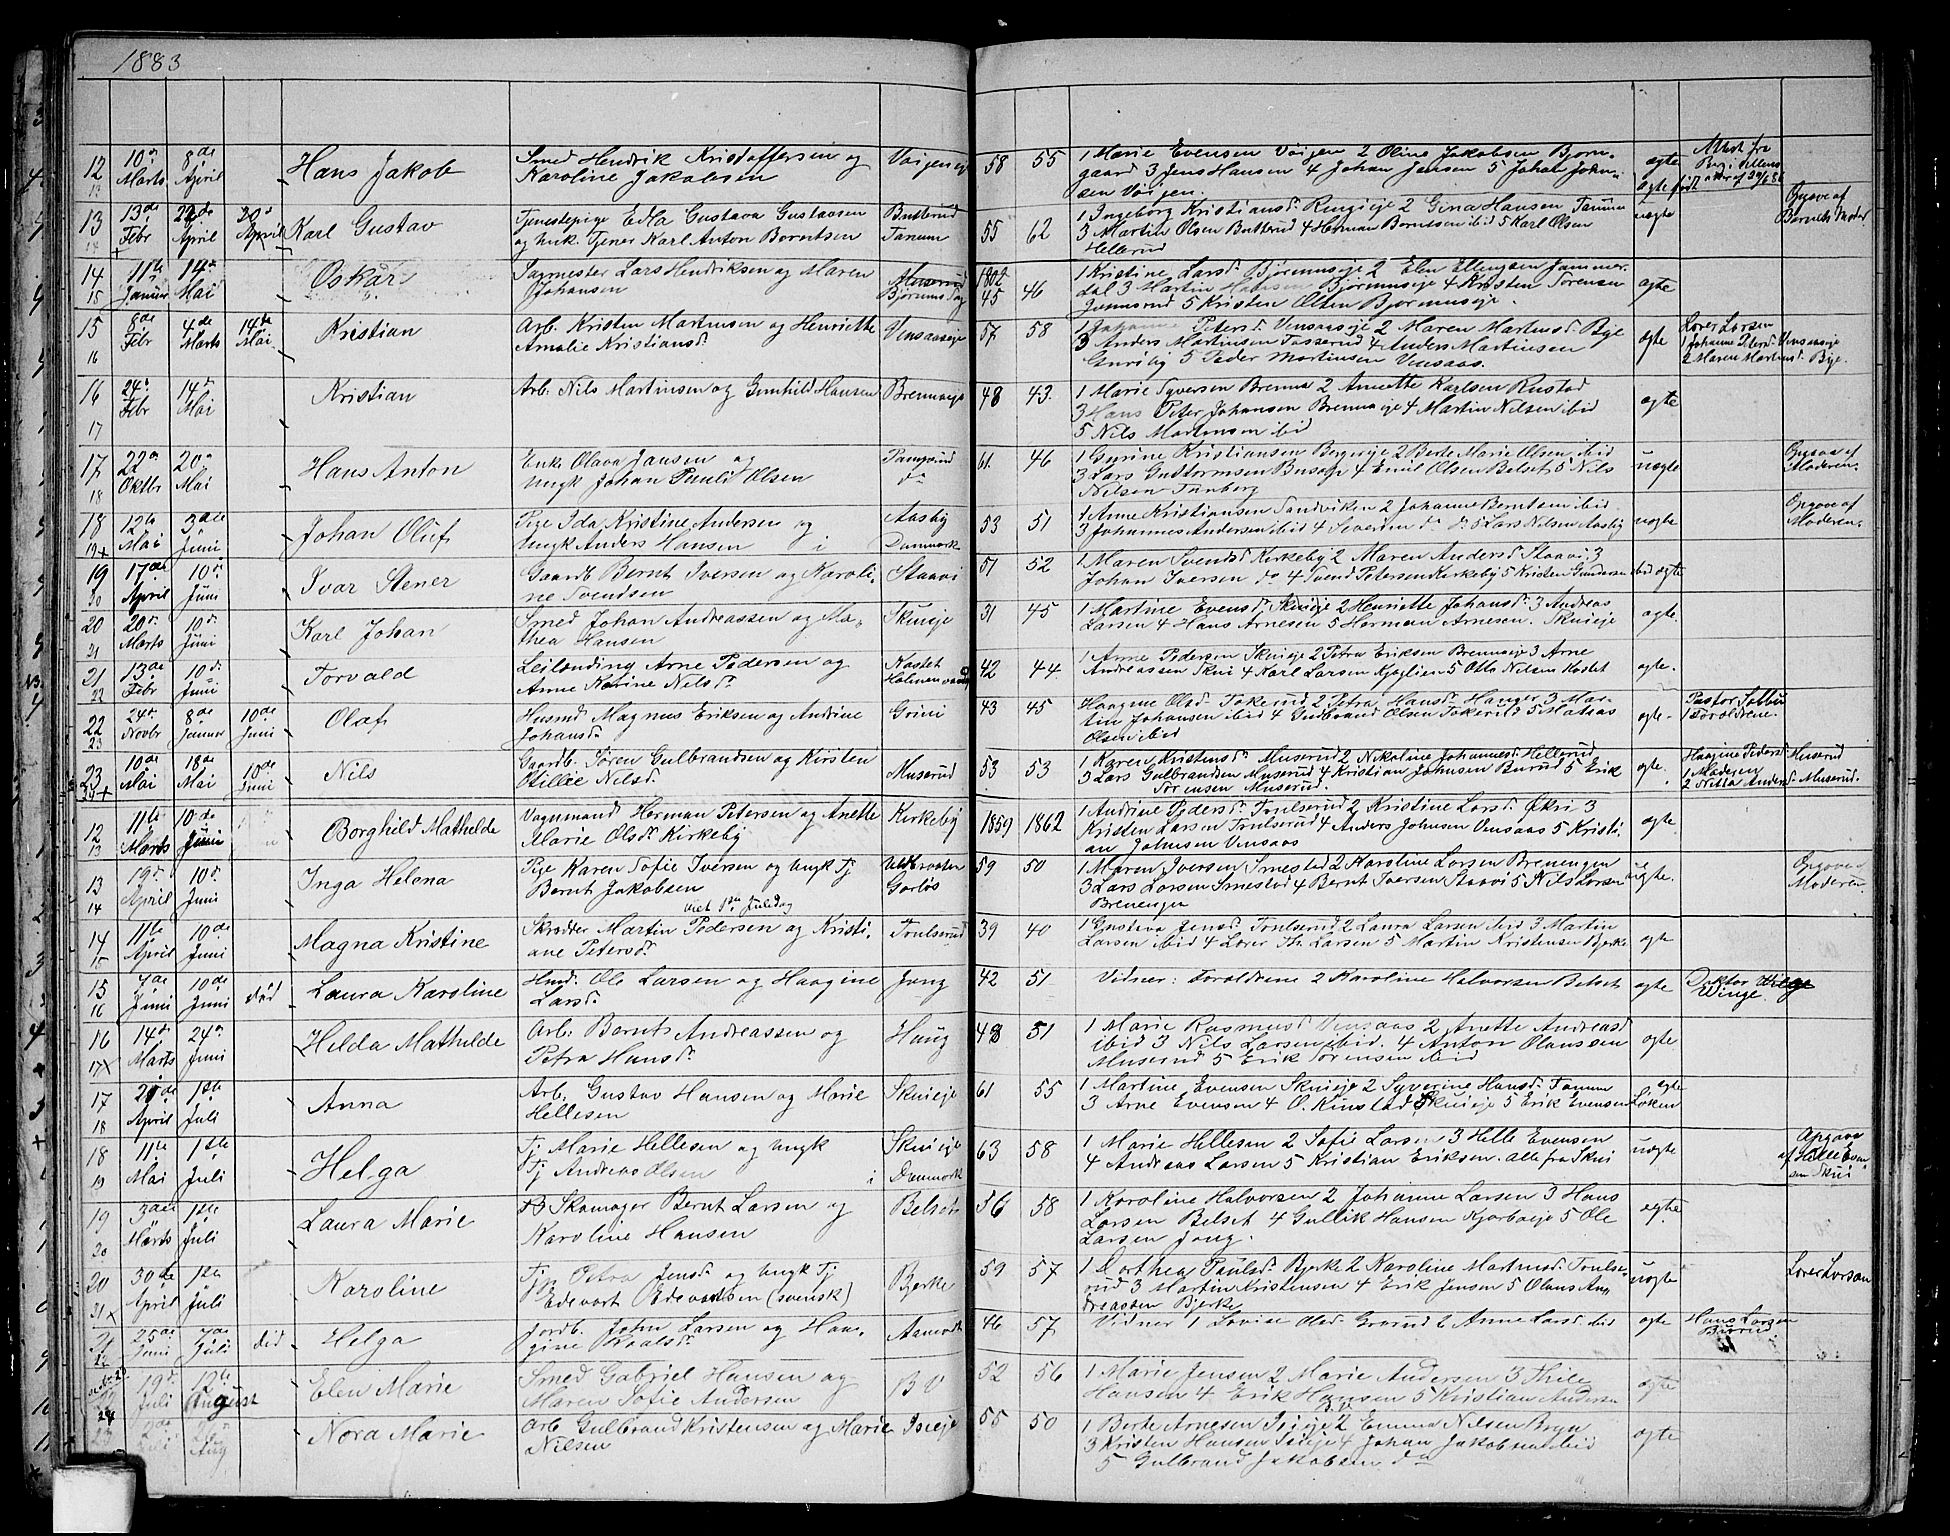 1883
12 10de Marts 8de April Hans Jakob Smed Hendrik Kristoffersen og Vøigeneje 58 55 1 Marie Evensen Vøigen 2 Oline Jakobsen Bjørn- ægte Attest fra
13 Karoline Jakobsen gaard 3 Jens Hansen 4 Johan Jensen 5 Johan Johan-
sen Vøigen. ægte født
13 13de Febr 22de April 20de April Karl Gustav Tjenestepige Edla Gustava Gustavsen Butterud 55 62 1 Ingeborg Kristiansd. Ringieje 2 Gina Hansen Tanum uægte Opgave af
14 og Ungk. Tjener Karl Anton Berntsen Tanum 3 Martin Olsen Butterud 4 Herman Berntsen ibid 5 Karl Olsen Barnets Moder
Hellerud
14 11te Januar 14de Mai Oskar Sagmester Lars Hendriksen og Maren Muserud 1802 45 46 1 Kristine Larsd. Bjørumseje 2 Elen Ellingsen Jammer- ægte
15 Johansen Bjørums Sag dal 3 Martin Hansen Bjørumseje 4 Kristen Sørensen
Jonsrud 5 Kristen Olsen Bjørumseje.
15 8de Febr 4de Marts 14de Mai Kristian Arb. Kristen Martinsen og Henriette Vensaaseje 57 58 1 Johanne Petersd. Vensaaseje 2 Maren Martinsd. Bye ægte Lærer Larsen
16 Amalie Kristiansd. 3 Anders Martinsen Tasserud 4 Anders Martinsen 1 Johanne Petersd. Vensaaseje
5 Peder Martinsen Vensaas. 2 Maren Martinsd. Bye.
16 24de Febr 14de Mai Kristian Arb. Nils Martinsen og Gunhild Hansen Brennaeje 48 43. 1 Marie Syversen Brenna 2 Annette Karlsen Rustad ægte
17 3 Hans Peter Johansen Brennaeje 4 Martin Nilsen ibid
5 Nils Martinsen ibid
17 22de Oktbr 20de Mai Hans Anton Enke Olava Jansen og 61. 46 1 Gurine Kristiansen Bergeneje 2 Berte Marie Olsen ibid uægte Opgave af
18 Ungk Johan Pauli Olsen do 3 Lars Guttormsen Busag 4 Emil Olsen Belset 5 Nils Moderen.
Nilsen Tanberg
18 12te Mai 3die Juni Johan Oluf Pige Ida Kristine Andersen og Aasby 53 51 1 Anne Kristiansen Sandviken 2 Johanne Berntsen ibid uægte Opgave af
19+ Ungk Anders Hansen i Danmark 3 Johannes Andersen ibid 4 Severin do 5 Lars Nilsen Aasby Moderen.
19 17de April 10de Juni Ivar Stener Gaardb Bernt Iversen og Karoli- Staavi 51 52 1 Maren Svendsd Kirkeby 2 Maren Andersd. Staavi 3
20 ne Svendsen Johan Iversen do 4 Svend Petersen Kirkeby 5 Kristen Gundersen ibid ægte
20 20de Marts 10de Juni Karl Johan Smed Johan Andreassen og Ma- Skuieje 31 45 1 Martine Evensd. Skuieje 2 Henriette Johansd. 3 Andreas ægte.
21 thea Hansen Larsen 4 Hans Arnesen 5 Herman Arnesen. Skuieje
21 13de Febr 10de Juni Torvald Leilending Arne Pedersen og Kastet 42 44. 1 Anne Pedersen Skuieje 2 Petra Eriksen Brennaeje 3 Arne ægte.
22 Anne Karine Nilsd. Andreassen Skui 4 Karl Larsen Kjaglien 5 Otto Nilsen Kastet
22 24de Novbr 8de Januar 10de Juni Olaf Husmd. Magnus Eriksen og Andrine Grini 43 45 Haagine Olsd. Tokerud 2 Petra Hansd. Hanger 3 Mar- ægte. Pastor
23 Johansd. tin Johansen ibid 4 Gulbrand Olsen Tokerud 5 Matias 1 Forældrene.
Olsen ibid
23 10de Mai 18de Mai 10de Juni Nils Gaardb. Søren Gulbrandsen og Kirsten Muserud 53 53 1 Karen Kristensd. Muserud 2 Nikoline Johannesd. Hellerud ægte. Haagine Pedersd. Muserud
24+ Otillie Nilsd. 3 Lars Gulbrandsen Muserud 4 Kristian Johnsen Burud 5 Erik 1 Moderen
Sørensen Muserud. 2 Netta Andersd. Muserud.
12 11te Marts 10de Juni Borghild Mathilde Vognmand Herman Petersen og Anette Kirkeby 1859 1862 1 Andrine Pedersd. Toulserud 2 Kristine Larsd. Økri 3 ægte.
13 Marie Olsd. Kirkeby Kristen Larsen Toulserud 4 Anders Johnsen Vensaas 5 Kristi-
an Johnsen Vensaas
13 19de April 10de Juni Inga Helena Pige Karen Sofie Iversen og Ungk Tj 59 50 1 Maren Iversen Smestad 2 Karoline Larsen Brenengen uægte. Opgave af
14 Bernt Jakobsen Gorløs 3 Lars Larsen Smestad 4 Bernt Iversen Staavi 5 Nils Larsen Moderen.
viet 1ste Juledag Brenengen
14 11te April 10de Juni Magna Kristine Skrædder Martin Pedersen og Kristi- Toulserud 39 40 1 Gustava Jensd. Toulserud 2 Laura Larsen ibid 3 Martin ægte
15 ane Petersd. Larsen ibid 4 Lærer Th. Larsen 5 Martin Kristensen Bjerke
15 7de Juni 10de Juni død Laura Karoline Husmd. Ole Larsen og Haagine Jong 42 51. Vidner: Forældrene 2 Karoline Halvorsen Belset ægte Doktor
16 Larsd. Winge.
16 14de Marts 24de Juni Helda Mathilde Arb. Bernt Andreassen og Haug 48 51 1 Marie Rasmusd. Vensaas 2 Anette Andreasd. ægte
17+ Petra Hansd. ibid 3 Nils Larsen ibid. 4 Anton Olaussen
Muserud 5 Erik Sørensen ibid
17 April 1ste Juli Anna Arb. Gustav Hansen og Marie Skuieje 61 55 1 Martine Evensen Skuieje 2 Syverine Hansd. Tanum ægte
18 Hellesen 3 Arne Evensen 4 O. Ringstad Skuieje 5 Erik Evensen Løken
18 11te Mai 1ste Juli Helga Tj Marie Hellesen og Ungk Skuieje 63 58 1 Marie Hellesen 2 Sofie Larsen 3 Helle Evensen uægte Opgave
19 Tj Andreas Olsen i Danmark 4 Andreas Larsen 5 Kristian Eriksen. Alle fra Skui af Helle Even-
sen Skui
19 3die Marts 1ste Juli Laura Marie Skomager Bernt Larsen og Belset 56 58 1 Karoline Halvorsen 2 Johanne Larsen 3 Hans ægte
20 Karoline Hansen Larsen Belset 4 Gullik Hansen Kjørboeje 5 Ole
Larsen Jong.
20 30te April 1ste Juli Karoline Tj Petra Jensd. og Ungk Tj Bjerke 59 57 1 Dorthea Paulsd. Bjerke 2 Karoline Martinsd. Toulse- uægte Lærer Larsen
21+ Edevart Edevartsen (svensk) rud 3 Martin Kristensen 4 Erik Jensen 5 Olaus An-
dreassen Bjerke
21 25de Juni 7de Juli død Helga Jordb. John Larsen og Haa- Aamodt 46 57 Vidner 1 Lovise Olsd. Grorud 2 Anne Larsd. ibid ægte Hans Larsen
22 gine Paalsd. Burud
19de Juli 12te August Elen Marie Smed Gabriel Hansen og B V 52 56 1 Marie Jensen 2 Marie Andersen 3 Thile ægte
Maren Sofie Andersen Hansen 4 Erik Hansen 5 Kristian Anderse
24 Juli Aug Nora Marie Arb Gulbrand Kristensen og Marie Isieje 55 50 1 Berte Arnesen Isieje 2 Emma Nilsen Bryn ægte
Nilsen 3 Kristen Hansen Isieje 4 Johan Jakobsen ibid
5 Gulbrand Jakobsen do